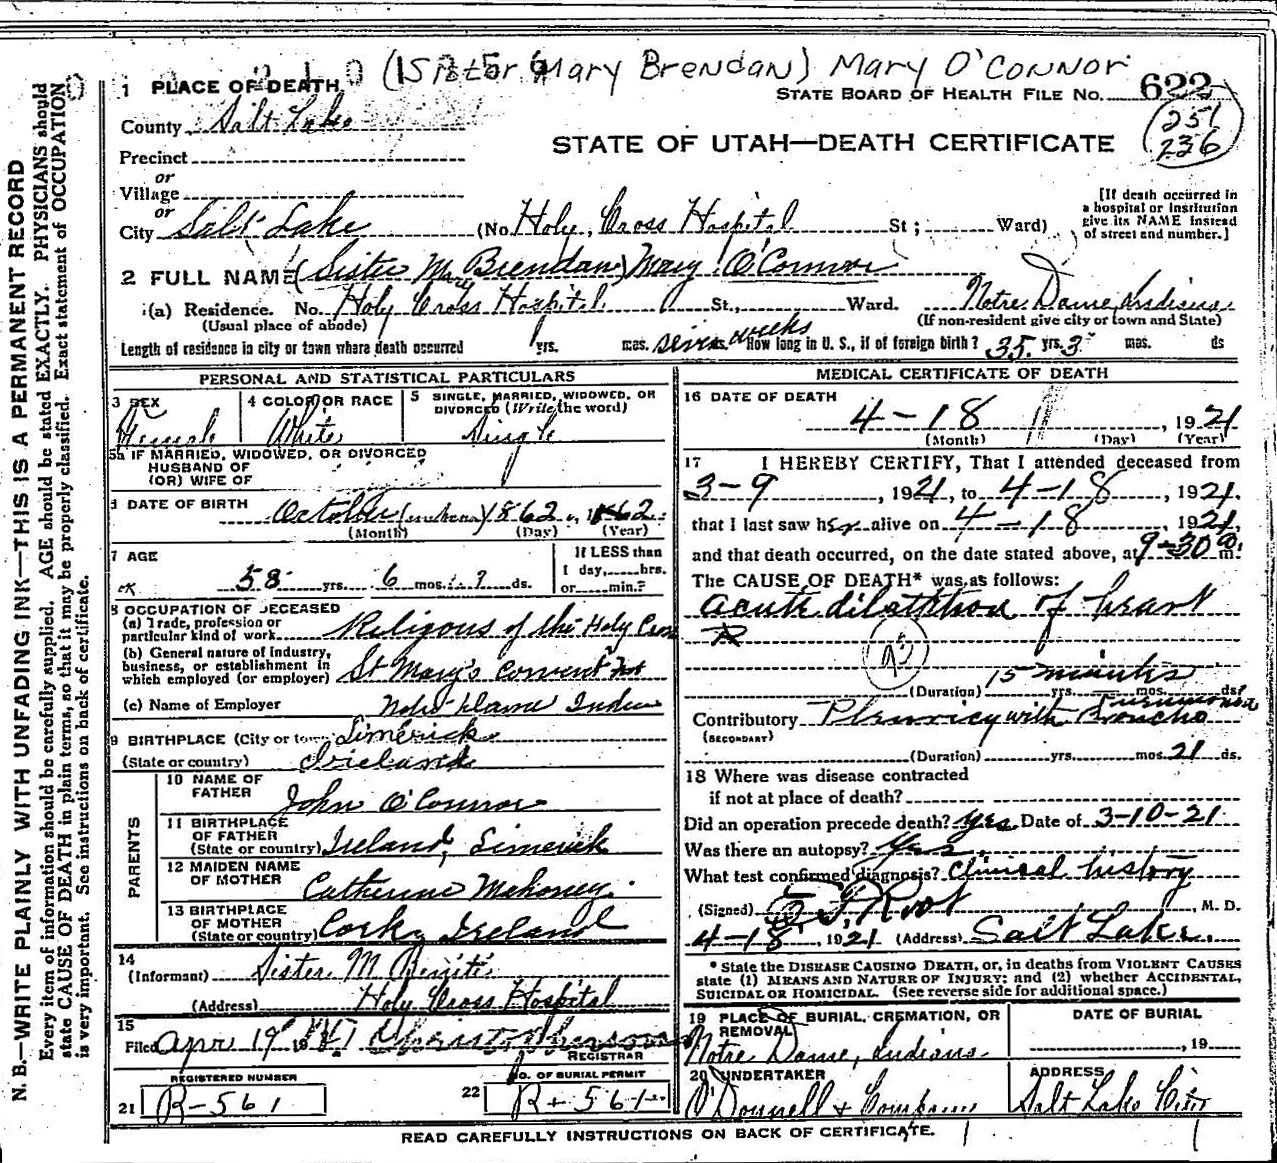 (Sister Mary Brendan) Mary O'Connor
1 PLACE OF DEATH
STATE BOARD OF HEALTH FILE NO. 622
251
236
County Salt Lake
STATE OF UTAH—DEATH CERTIFICATE
Precinct
or
Village
or
City Salt Lake (No. Holy Cross Hospital St; Ward)
[If death occurred in
a hospital or institution
give its NAME instead
of street and number.]
2 FULL NAME (Sister Mary Brendan) Mary O'Connor
(a) Residence. No. Holy Cross Hospital St., Ward. Notre Dame, Indiana
(Usual place of abode) (If non-resident give city or town and State)
Length of residence in city or town where death occurred yrs. mos. weeks How long in U. S., if of foreign birth? 35 yrs. 3 mos. ds
PERSONAL AND STATISTICAL PARTICULARS
3 SEX
Female
4 COLOR OR RACE
White
5 SINGLE, MARRIED, WIDOWED, OR
DIVORCED (Write the word)
Single
5a IF MARRIED, WIDOWED, OR DIVORCED
HUSBAND OF
(OR) WIFE OF
DATE OF BIRTH
October 1862, 1862
(Month) (Day) (Year)
7 AGE
58 yrs. 6 mos. ? ds.
If LESS than
1 day, hrs.
or min.?
8 OCCUPATION OF DECEASED
(a) Trade, profession or
particular kind of work Religous of the Holy Cross
(b) General nature of industry,
business, or establishment in
which employed (or employer) St Mary's Convent
(c) Name of Employer Notre Dame Indiana
9 BIRTHPLACE (City or town) Limerick
(State or country) Ireland
PARENTS
10 NAME OF
FATHER John O'Connor
11 BIRTHPLACE
OF FATHER
(State or country) Ireland, Limerick
12 MAIDEN NAME
OF MOTHER Catherine Mahoney.
13 BIRTHPLACE
OF MOTHER
(State or country) Cork, Ireland
14
(Informant) Sister M
(Address) Holy Cross Hospital
15
Filed Apr 19 Christopherson
REGISTRAR
REGISTERED NUMBER
21 R-561
NO. OF BURIAL PERMIT
22 R-561
MEDICAL CERTIFICATE OF DEATH
16 DATE OF DEATH
4-18, 1921
(Month) (Day) (Year)
17 I HEREBY CERTIFY, That I attended deceased from
3-9, 1921, to 4-18, 1921.
that I last saw her alive on 4-18, 1921,
and that death occurred, on the date stated above, at 9-30 a m.
The CAUSE OF DEATH* was as follows:
acute dilatation of heart
15 minutes
(Duration) yrs. mos. ds.
Contributory Pleuricy with Broncho pneumonia
(SECONDARY)
(Duration) yrs. mos. 21 ds.
18 Where was disease contracted
if not at place of death?
Did an operation precede death? Yes. Date of 3-10-21
Was there an autopsy? Yes.
What test confirmed diagnosis? Clinical history
(Signed) Root, M. D.
4-18, 1921 (Address) Salt Lake.
* State the DISEASE CAUSING DEATH, or, in deaths from VIOLENT CAUSES
state (1) MEANS AND NATURE OF INJURY; and (2) whether ACCIDENTAL,
SUICIDAL OR HOMICIDAL. (See reverse side for additional space.)
19 PLACE OF BURIAL, CREMATION, OR
REMOVAL
Notre Dame, Indiana
DATE OF BURIAL
, 19
20 UNDERTAKER
O'Donnell & Company
ADDRESS
Salt Lake City
READ CAREFULLY INSTRUCTIONS ON BACK OF CERTIFICATE.
N. B.—WRITE PLAINLY WITH UNFADING INK—THIS IS A PERMANENT RECORD
Every item of information should be carefully supplied. AGE should be stated EXACTLY. PHYSICIANS should
state CAUSE OF DEATH in plain terms, so that it may be properly classified. Exact statement of OCCUPATION
is very important. See instructions on back of certificate.